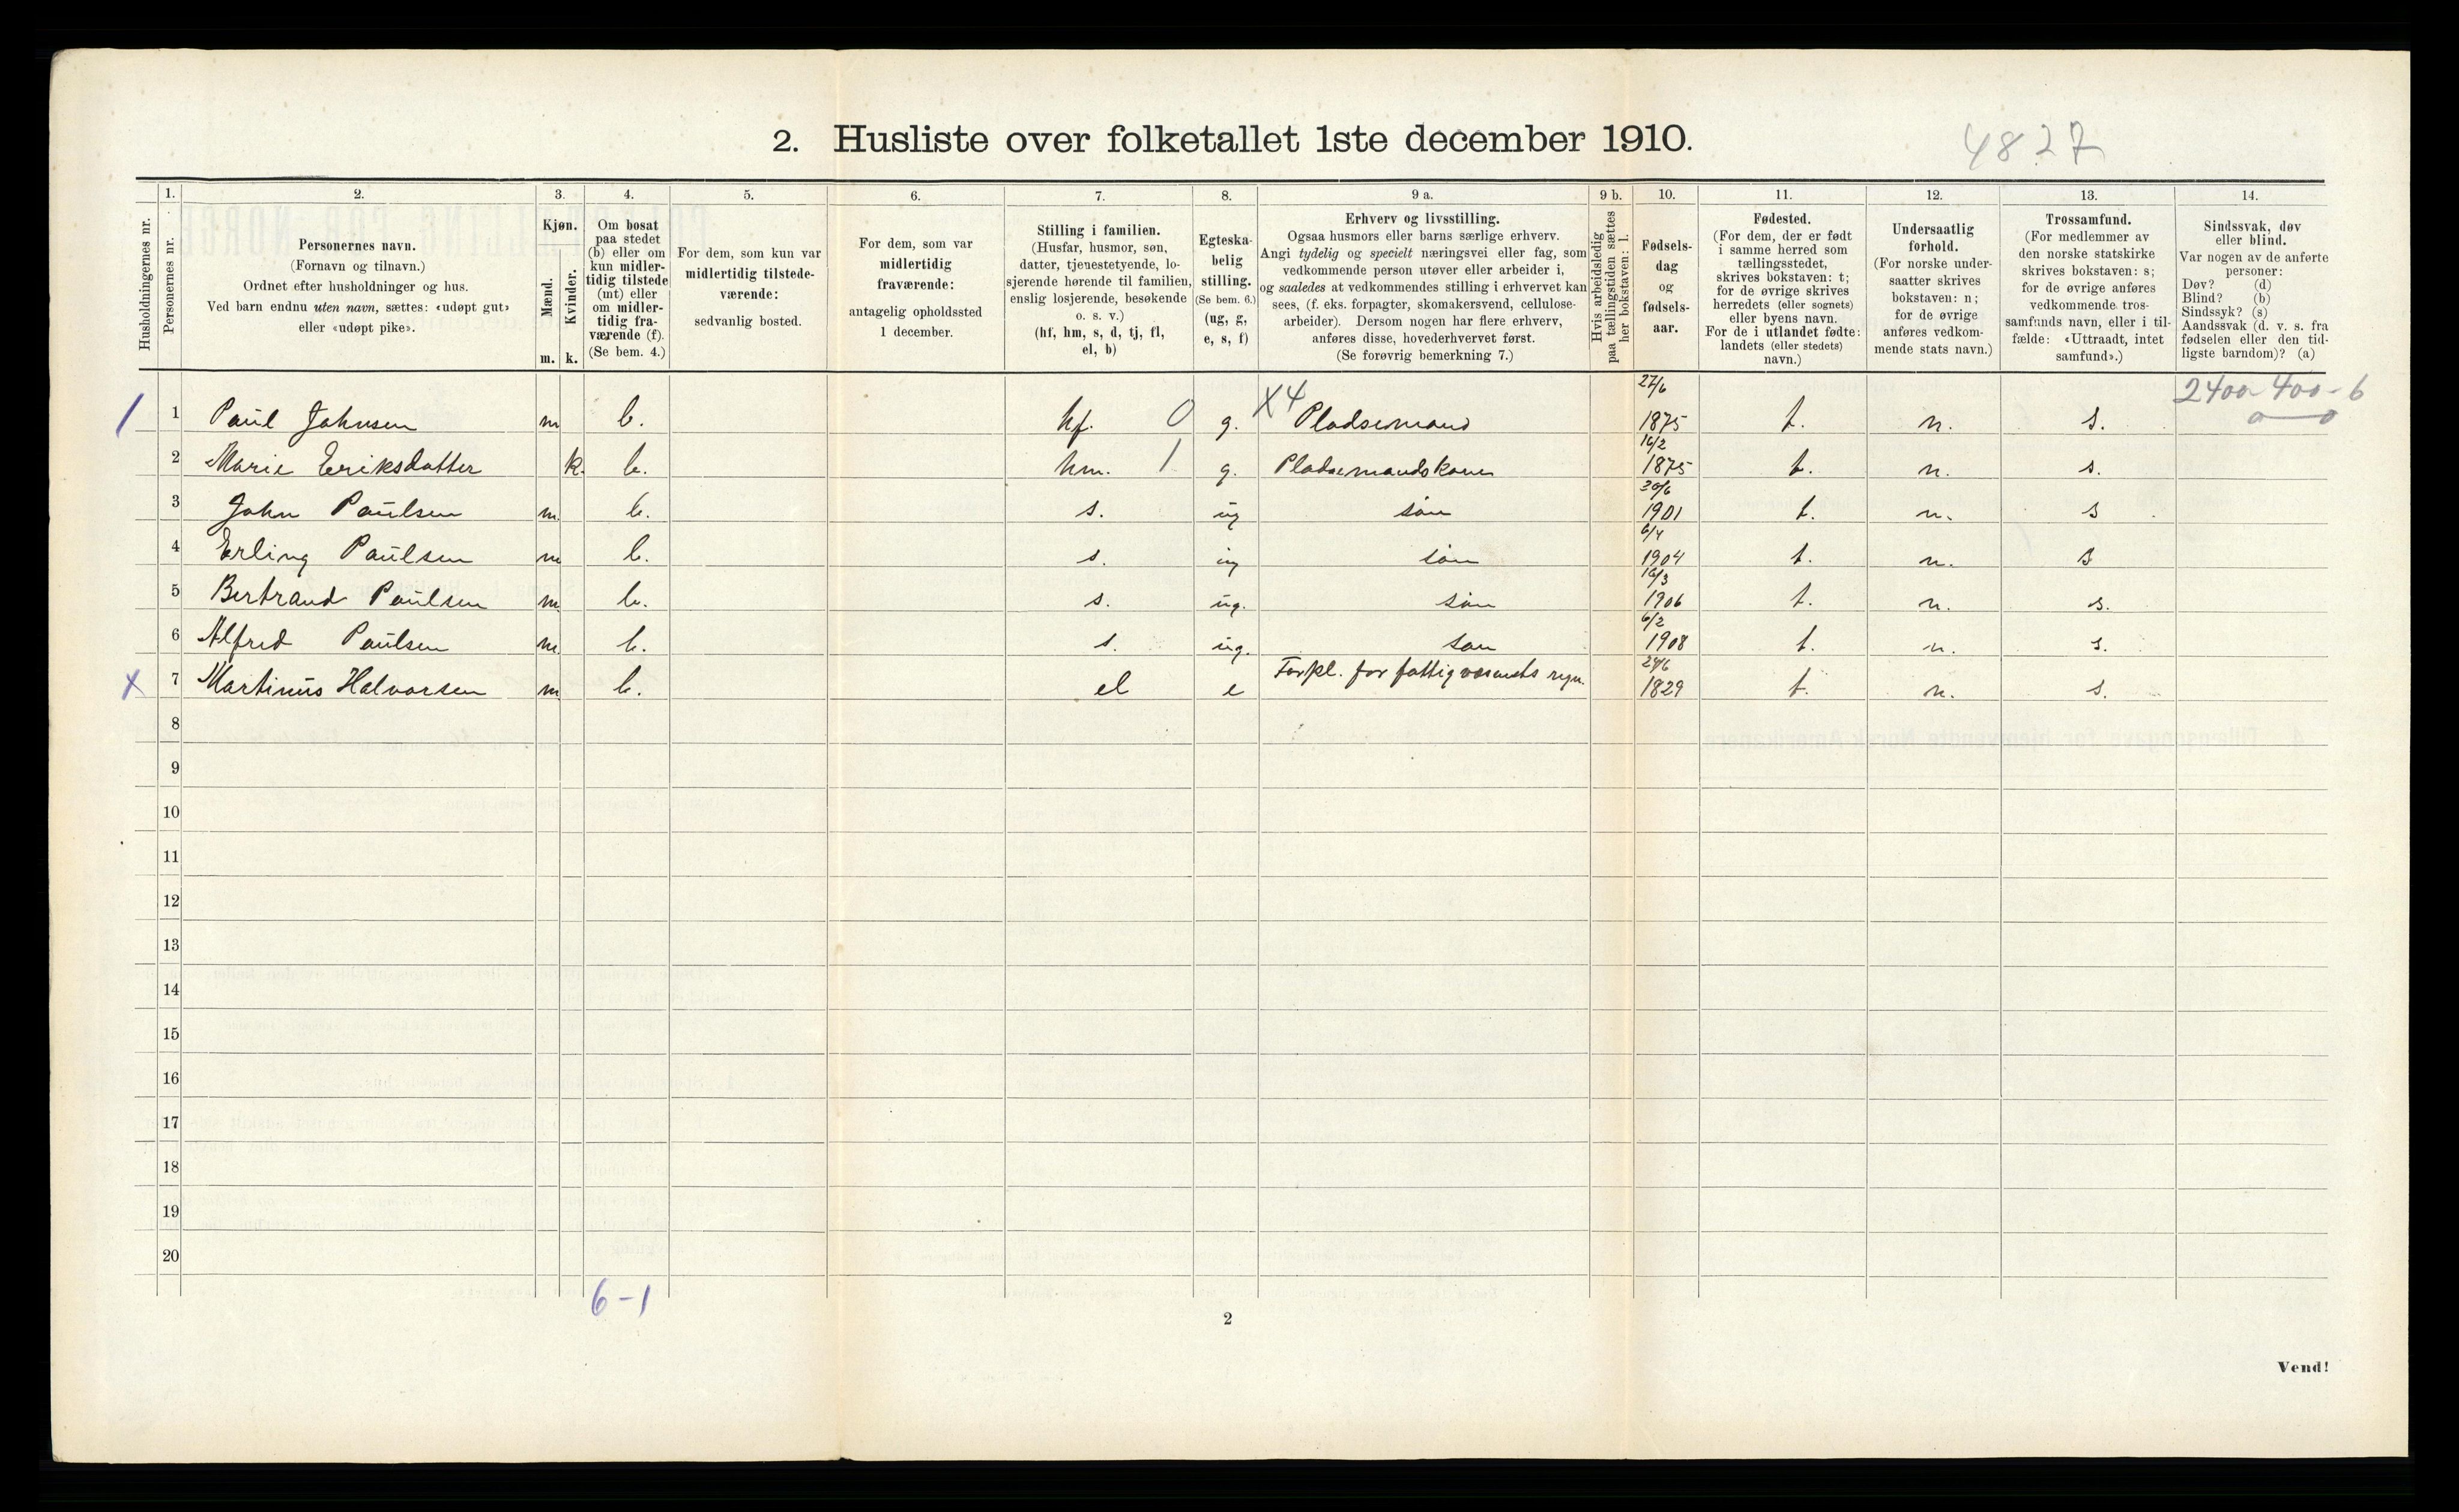 2. Husliste over folketallet 1ste december 1910.
4827
1. 2. 3. 4. 5. 6. 7. 8. 9 a. 9 b. 10. 11. 12. 13. 14.
Husholdningernes nr.
Personernes nr.
Personernes navn.
(Fornavn og tilnavn.)
Ordnet efter husholdninger og hus.
Ved barn endnu uten navn, sættes: «udøpt gut»
eller «udøpt pike».
Kjøn.
Mænd.
Kvinder.
m. k.
Om bosat
paa stedet
(b) eller om
kun midler-
tidig tilstede
(mt) eller
om midler-
tidig fra-
værende (f).
(Se bem. 4.)
For dem, som kun var
midlertidig tilstede-
værende:
sedvanlig bosted.
For dem, som var
midlertidig
fraværende:
antagelig opholdssted
1 december.
Stilling i familien.
(Husfar, husmor, søn,
datter, tjenestetyende, lo-
sjerende hørende til familien,
enslig losjerende, besøkende
o. s. v.)
(hf, hm, s, d, tj, fl,
el, b)
Egteska-
belig
stilling.
(Se bem. 6.)
(ug, g,
e, s, f)
Erhverv og livsstilling.
Ogsaa husmors eller barns særlige erhverv.
Angi tydelig og specielt næringsvei eller fag, som
vedkommende person utøver eller arbeider i,
og saaledes at vedkommendes stilling i erhvervet kan
sees, (f. eks. forpagter, skomakersvend, cellulose-
arbeider). Dersom nogen har flere erhverv,
anføres disse, hovederhvervet først.
(Se forøvrig bemerkning 7.)
Hvis arbeidsledig
paa tællingstiden sættes
her bokstaven: l.
Fødsels-
dag
og
fødsels-
aar.
Fødested.
(For dem, der er født
i samme herred som
tællingsstedet,
skrives bokstaven: t;
for de øvrige skrives
herredets (eller sognets)
eller byens navn.
For de i utlandet fødte:
landets (eller stedets)
navn.)
Undersaatlig
forhold.
(For norske under-
saatter skrives
bokstaven: n;
for de øvrige
anføres vedkom-
mende stats navn.)
Trossamfund.
(For medlemmer av
den norske statskirke
skrives bokstaven: s;
for de øvrige anføres
vedkommende tros-
samfunds navn, eller i til-
fælde: «Uttraadt, intet
samfund».)
Sindssvak, døv
eller blind.
Var nogen av de anførte
personer:
Døv? (d)
Blind? (b)
Sindssyk? (s)
Aandssvak (d. v. s. fra
fødselen eller den tid-
ligste barndom)? (a)
2400-400-6
0 0
1 1 Paul Johnsen m b. hf. 0 g. X4 Pladsemand 27/6 1875 t. n. s.
2 Marie Eriksdatter k. b. hm. 1 g. Pladsemandskone 16/2 1875 t. n. s.
3 John Paulsen m. b. s. ug søn 20/6 1901 t. n. s
4 Erling Paulsen m b. s. ug søn 6/4 1904 t. n. s
5 Bertrand Paulsen m b. s. ug. søn 16/3 1906 t. n. s.
6 Alfred Paulsen m b. s. ug. søn 6/2 1908 t. n. s.
X 7 Martinus Halvorsen m b. el e Forpl. for fattigvæsenets regn. 24/6 1829 t. n. s.
8
9
10
11
12
13
14
15
16
17
18
19
20
6-1
2
Vend!